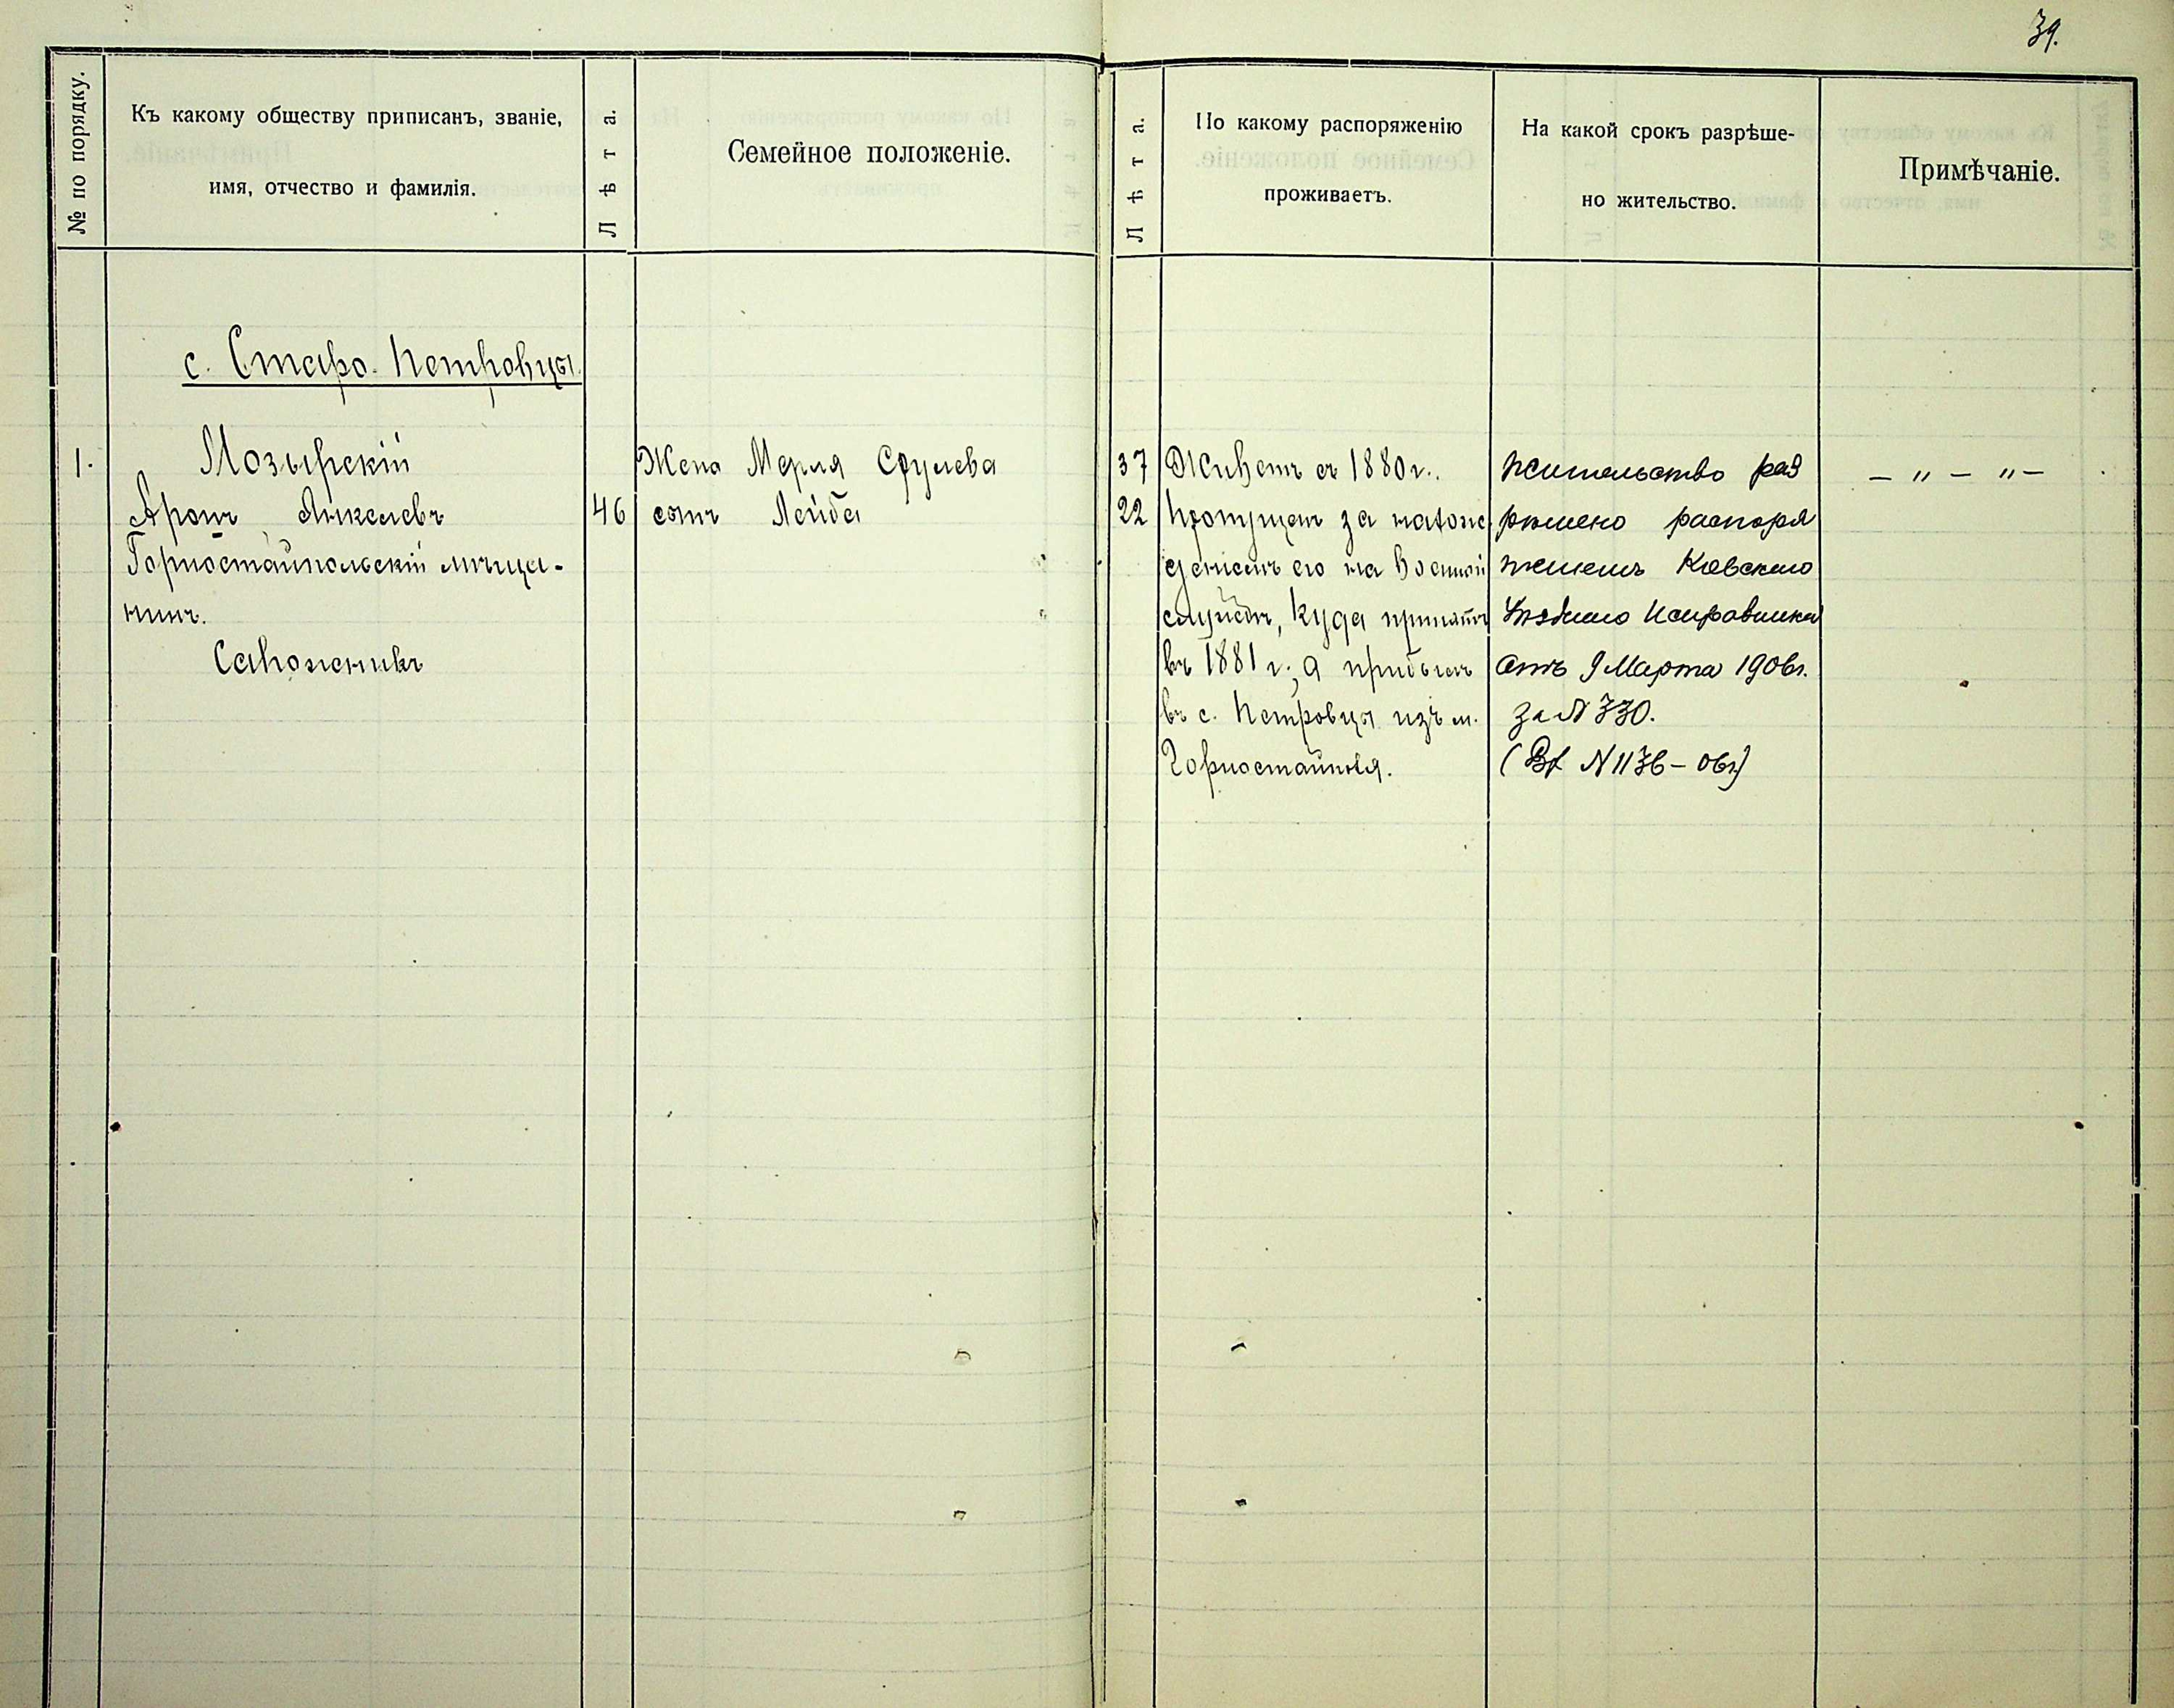 39.
№ по порядку.
Къ какому обществу приписанъ, званіе,
имя, отчество и фамилія.
Лѣта.
Семейное положеніе.
Лѣта.
По какому распоряженію
проживаетъ.
На какой срокъ разрѣше-
но жительство.
Примѣчаніе.
с. Старо-Петровцы.
1.
Мозырскій
Аронъ Янкелевъ
Горностайпольскій мѣща-
нинъ.
Сапожникъ
46
Жена Мерля Срулева
сынъ Лейба
37
22
Живетъ съ 1880 г.
Пропущен за нахож
деніемъ его на военной
службѣ, куда принятъ
въ 1881 г., а прибылъ
въ с. Петровцы изъ м.
Горностайполя.
жительство раз
рѣшено распоря
женіемъ Кіевскаго
Уѣзднаго Исправника
отъ 9 Марта 1906 г.
за № 330.
(Вх № 1136 – 06 г)
– „ – „ –